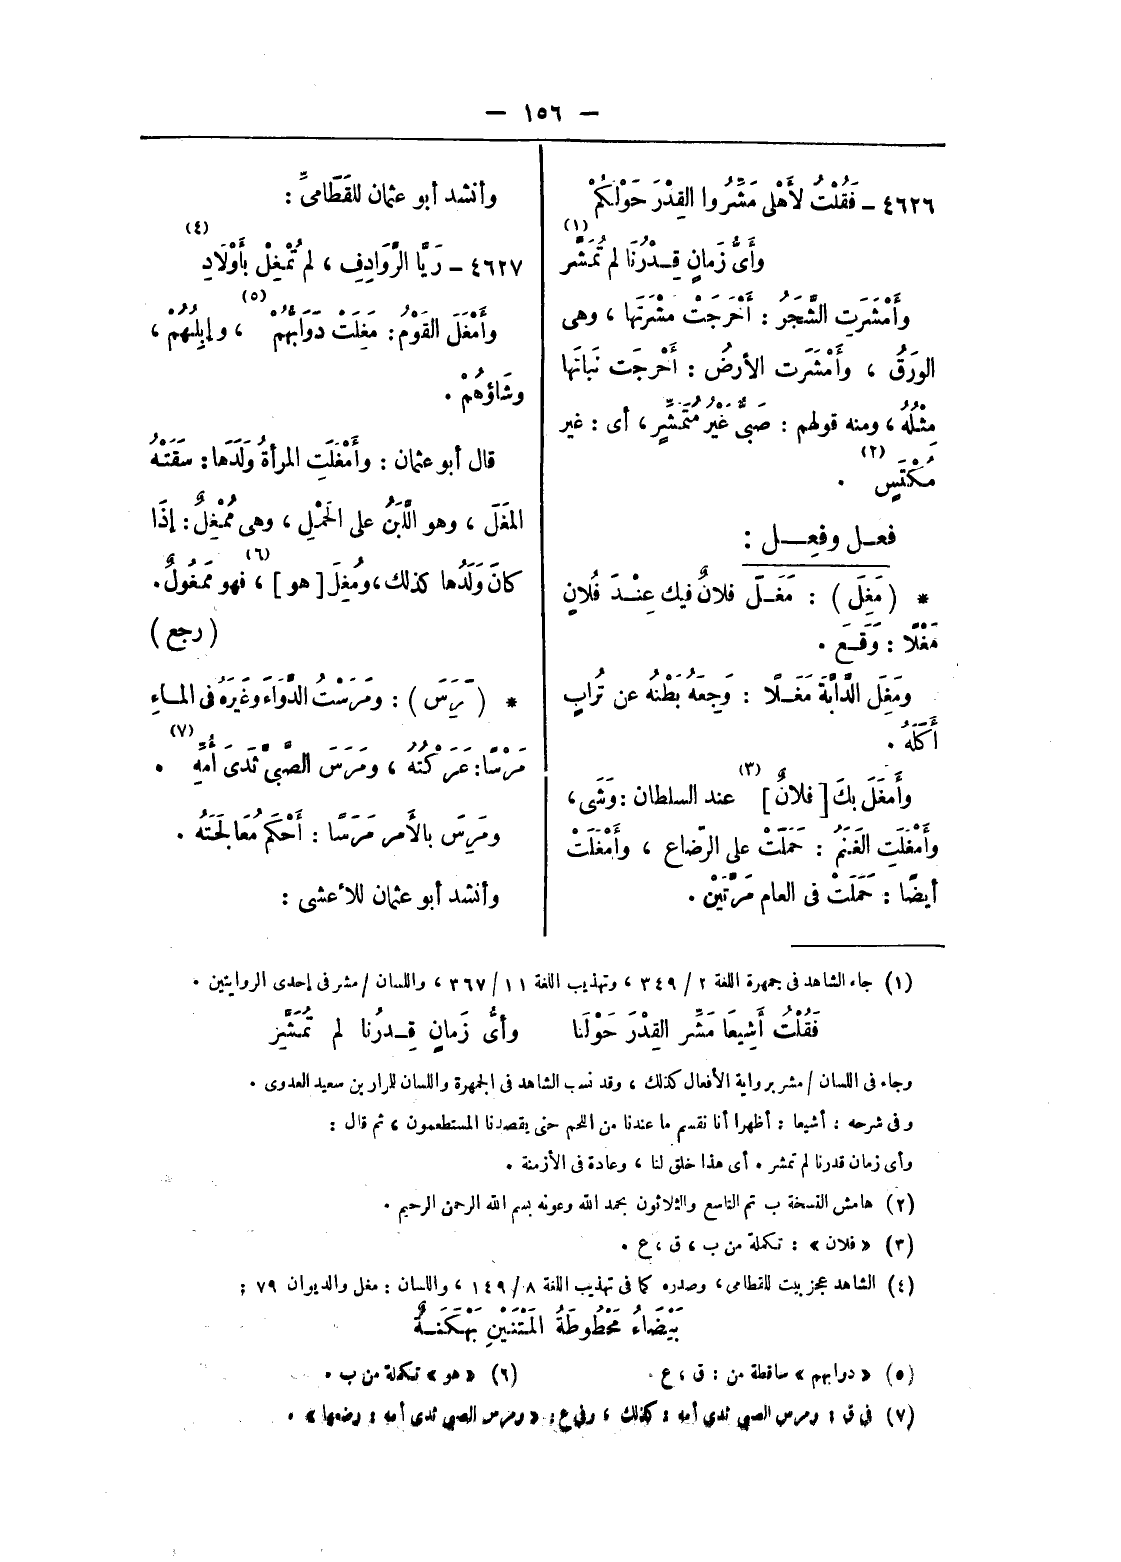 — ١٥٦ —
٤٦٢٦ - فَقُلْتُ لأَهْلِى مَشِّرُوا القِدْرَ حَوْلَكُمْ
وأَىُّ زَمانٍ قِدْرُنَا لم تُمَشَّرِ (١)
وأَمْشَرَتِ الشَّجَرُ : أَخْرَجَتْ مشْرَتَها ، وهى
الوَرَقُ ، وأَمْشَرَت الأرضُ : أَخْرجَت نَباتَها
مِثْلُهُ ، ومنه قولهم : صَبِىٌّ غَيْرُ مُتَمَشِّرٍ ، أى : غير
مُكْتَسٍ (٢) .
فعل وفعِل :
* ( مَغِلَ ) : مَغَلَ فلانٌ فيك عِنْدَ فُلانٍ
مَغْلًا : وَقَعَ .
ومَغِل الدَّابَّةَ مَغَلًا : وَجِعَهُ بَطْنُه عن تُرابٍ
أَكَلَهُ .
وأَمغَلَ بكَ [ فلانٌ ] (٣) عند السلطان : وَشَى ،
وأَمْغَلَتِ الغَنَمُ : حَمَلَتْ على الرّضاع ، وأَمْغَلَتْ
أيضًا : حَمَلَتْ فى العام مَرَّتَيْن .
وأنشد أبو عثمان للقَطَامىِّ :
٤٦٢٧ - رَيَّا الرَّوَادِفِ ، لم تُمْغِلْ بأَوْلَادِ (٤)
وأَمْغَلَ القَوْمُ : مَغِلَتْ دَوَابُّهُمْ (٥) ، وإِبِلُهُمْ ،
وشَاؤُهُمْ .
قال أبو عثمان : وأَمْغَلَتِ المرأةُ وَلَدَها : سقَتْه
المَغَلَ ، وهو اللَّبَنُ على الحَمْلِ ، وهى مُمْغِلٌ : إذَا
كانَ وَلَدُها كذلك ، ومُغِلَ [ هو ] (٦) ، فهو مَمْغُولٌ .
( رجع )
* ( مَرَسَ ) : ومَرَسْتُ الدَّواءَ وغَيَرَهُ فى الماءِ
مَرْسًا : عَرَكْتُه ، ومَرَسَ الصَّبِىُّ ثَدْىَ أُمِّهِ (٧) .
ومَرِسَ بالأَمر مَرَسًا : أَحْكَم مُعَالَجَتَه .
وأنشد أبو عثمان للأعشى :
(١) جاء الشاهد فى جمهرة اللغة ٢ / ٣٤٩ ، وتهذيب اللغة ١١ / ٣٦٧ ، واللسان / مشر فى إحدى الروايتين .
فَقُلْتُ أَشِيعَا مَشِّر القِدْرَ حَوْلَنَا وأىُّ زَمانٍ قِدرُنا لم تُمَشَّرِ
وجاء فى اللسان / مشر برواية الأفعال كذلك ، وقد نسب الشاهد فى الجمهرة واللسان للمرار بن سعيد العدوى .
وفى شرحه : أشيعا : أظهرا أنا نقسم ما عندنا من اللحم حتى يقصدنا المستطعمون ، ثم قال :
وأى زمان قدرنا لم تمشر . أى هذا خلق لنا ، وعادة فى الأزمنة .
(٢) هامش النسخة ب تم التاسع والثلاثون بحمد الله وعونه بسم الله الرحمن الرحيم .
(٣) « فلان » : تكملة من ب ، ق ، ع .
(٤) الشاهد عجز بيت للقطامى ، وصدره كما فى تهذيب اللغة ٨ / ١٤٩ ، واللسان : مغل والديوان ٧٩ ;
بَيْضَاءُ مَحْطُوطَةُ المَتْنَيْنِ بَهْكَنَةٌ
(٥) « دوابهم » ساقطة من : ق ، ع .
(٦) « هو » تكملة من ب .
(٧) فى ق : ومرس الصبى ثدى أمه : كذلك ، وفى ع : « ومرس الصبى ثدى أمه : رضعها » .